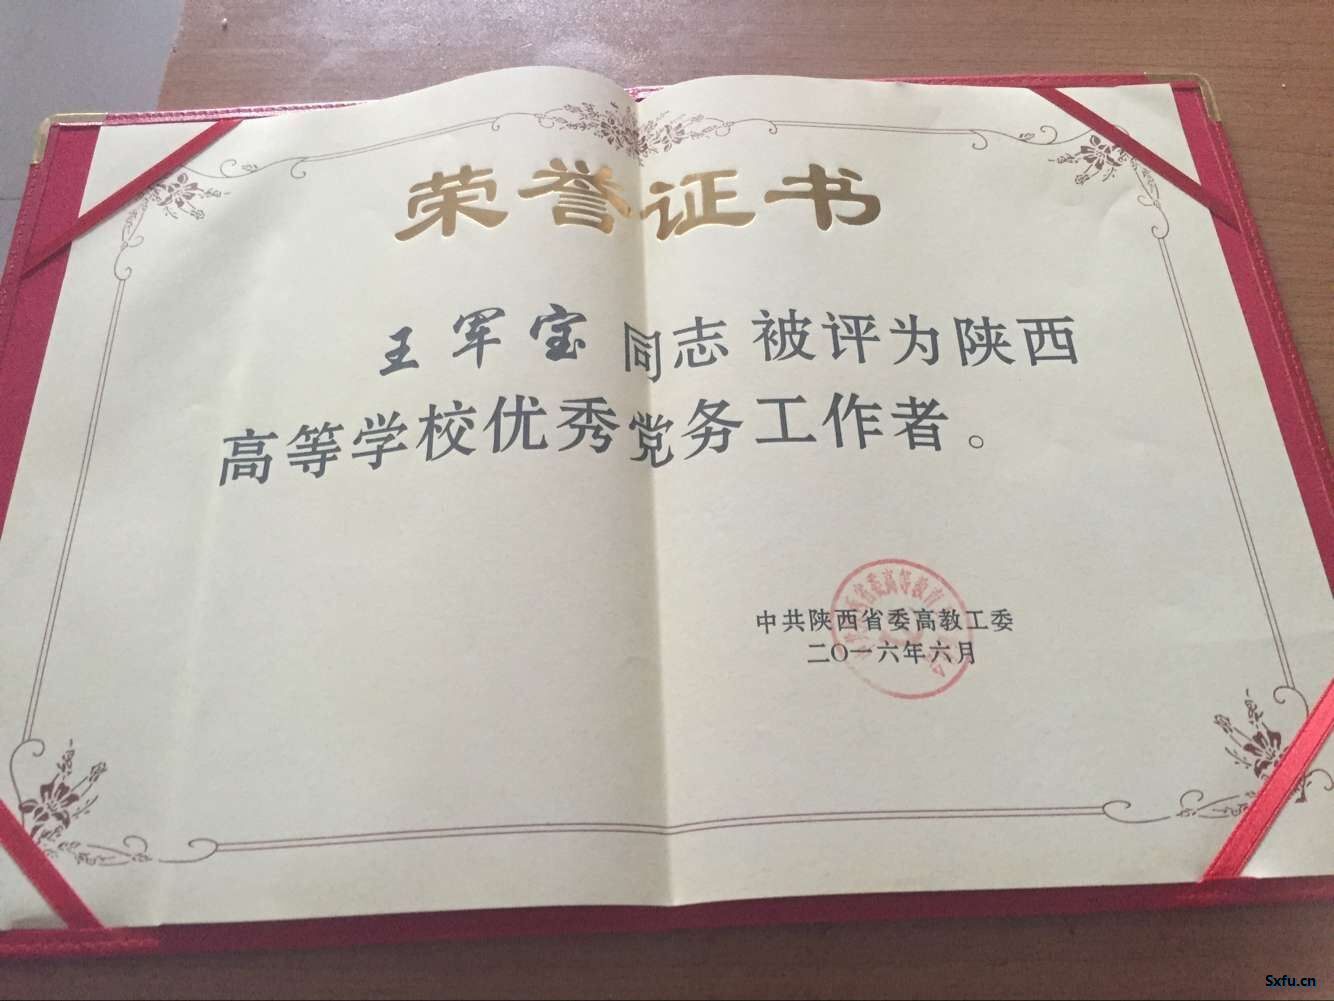 荣誉证书
王军宝同志被评为陕西
高等学校优秀党务工作者。
中共陕西省委高教工委
二〇一六年六月
Sxfu.cn